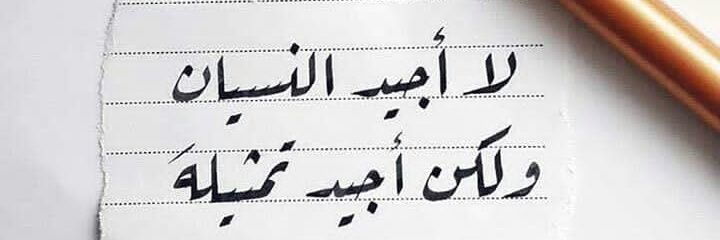 لا أجيد النسيان
ولكن أجيد تمثيلهَ